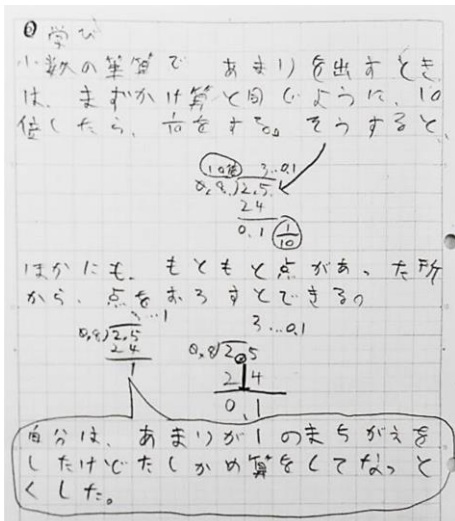 ◎学び
小数の筆算で あまりを出すとき
は、まずかけ算と同じように、10
倍したら、1/10をする。そうすると、
10倍 3...0.1
0.8)2.5
24
0.1 1/10
ほかにも、もともと点があった所
から、点をおろすとできる。
3...1
0.8)2.5
24
1
3...0.1
0.8)2.5
2 4
0.1
自分は、あまりが1のまちがえを
したけどたしかめ算をしてなっと
くした。